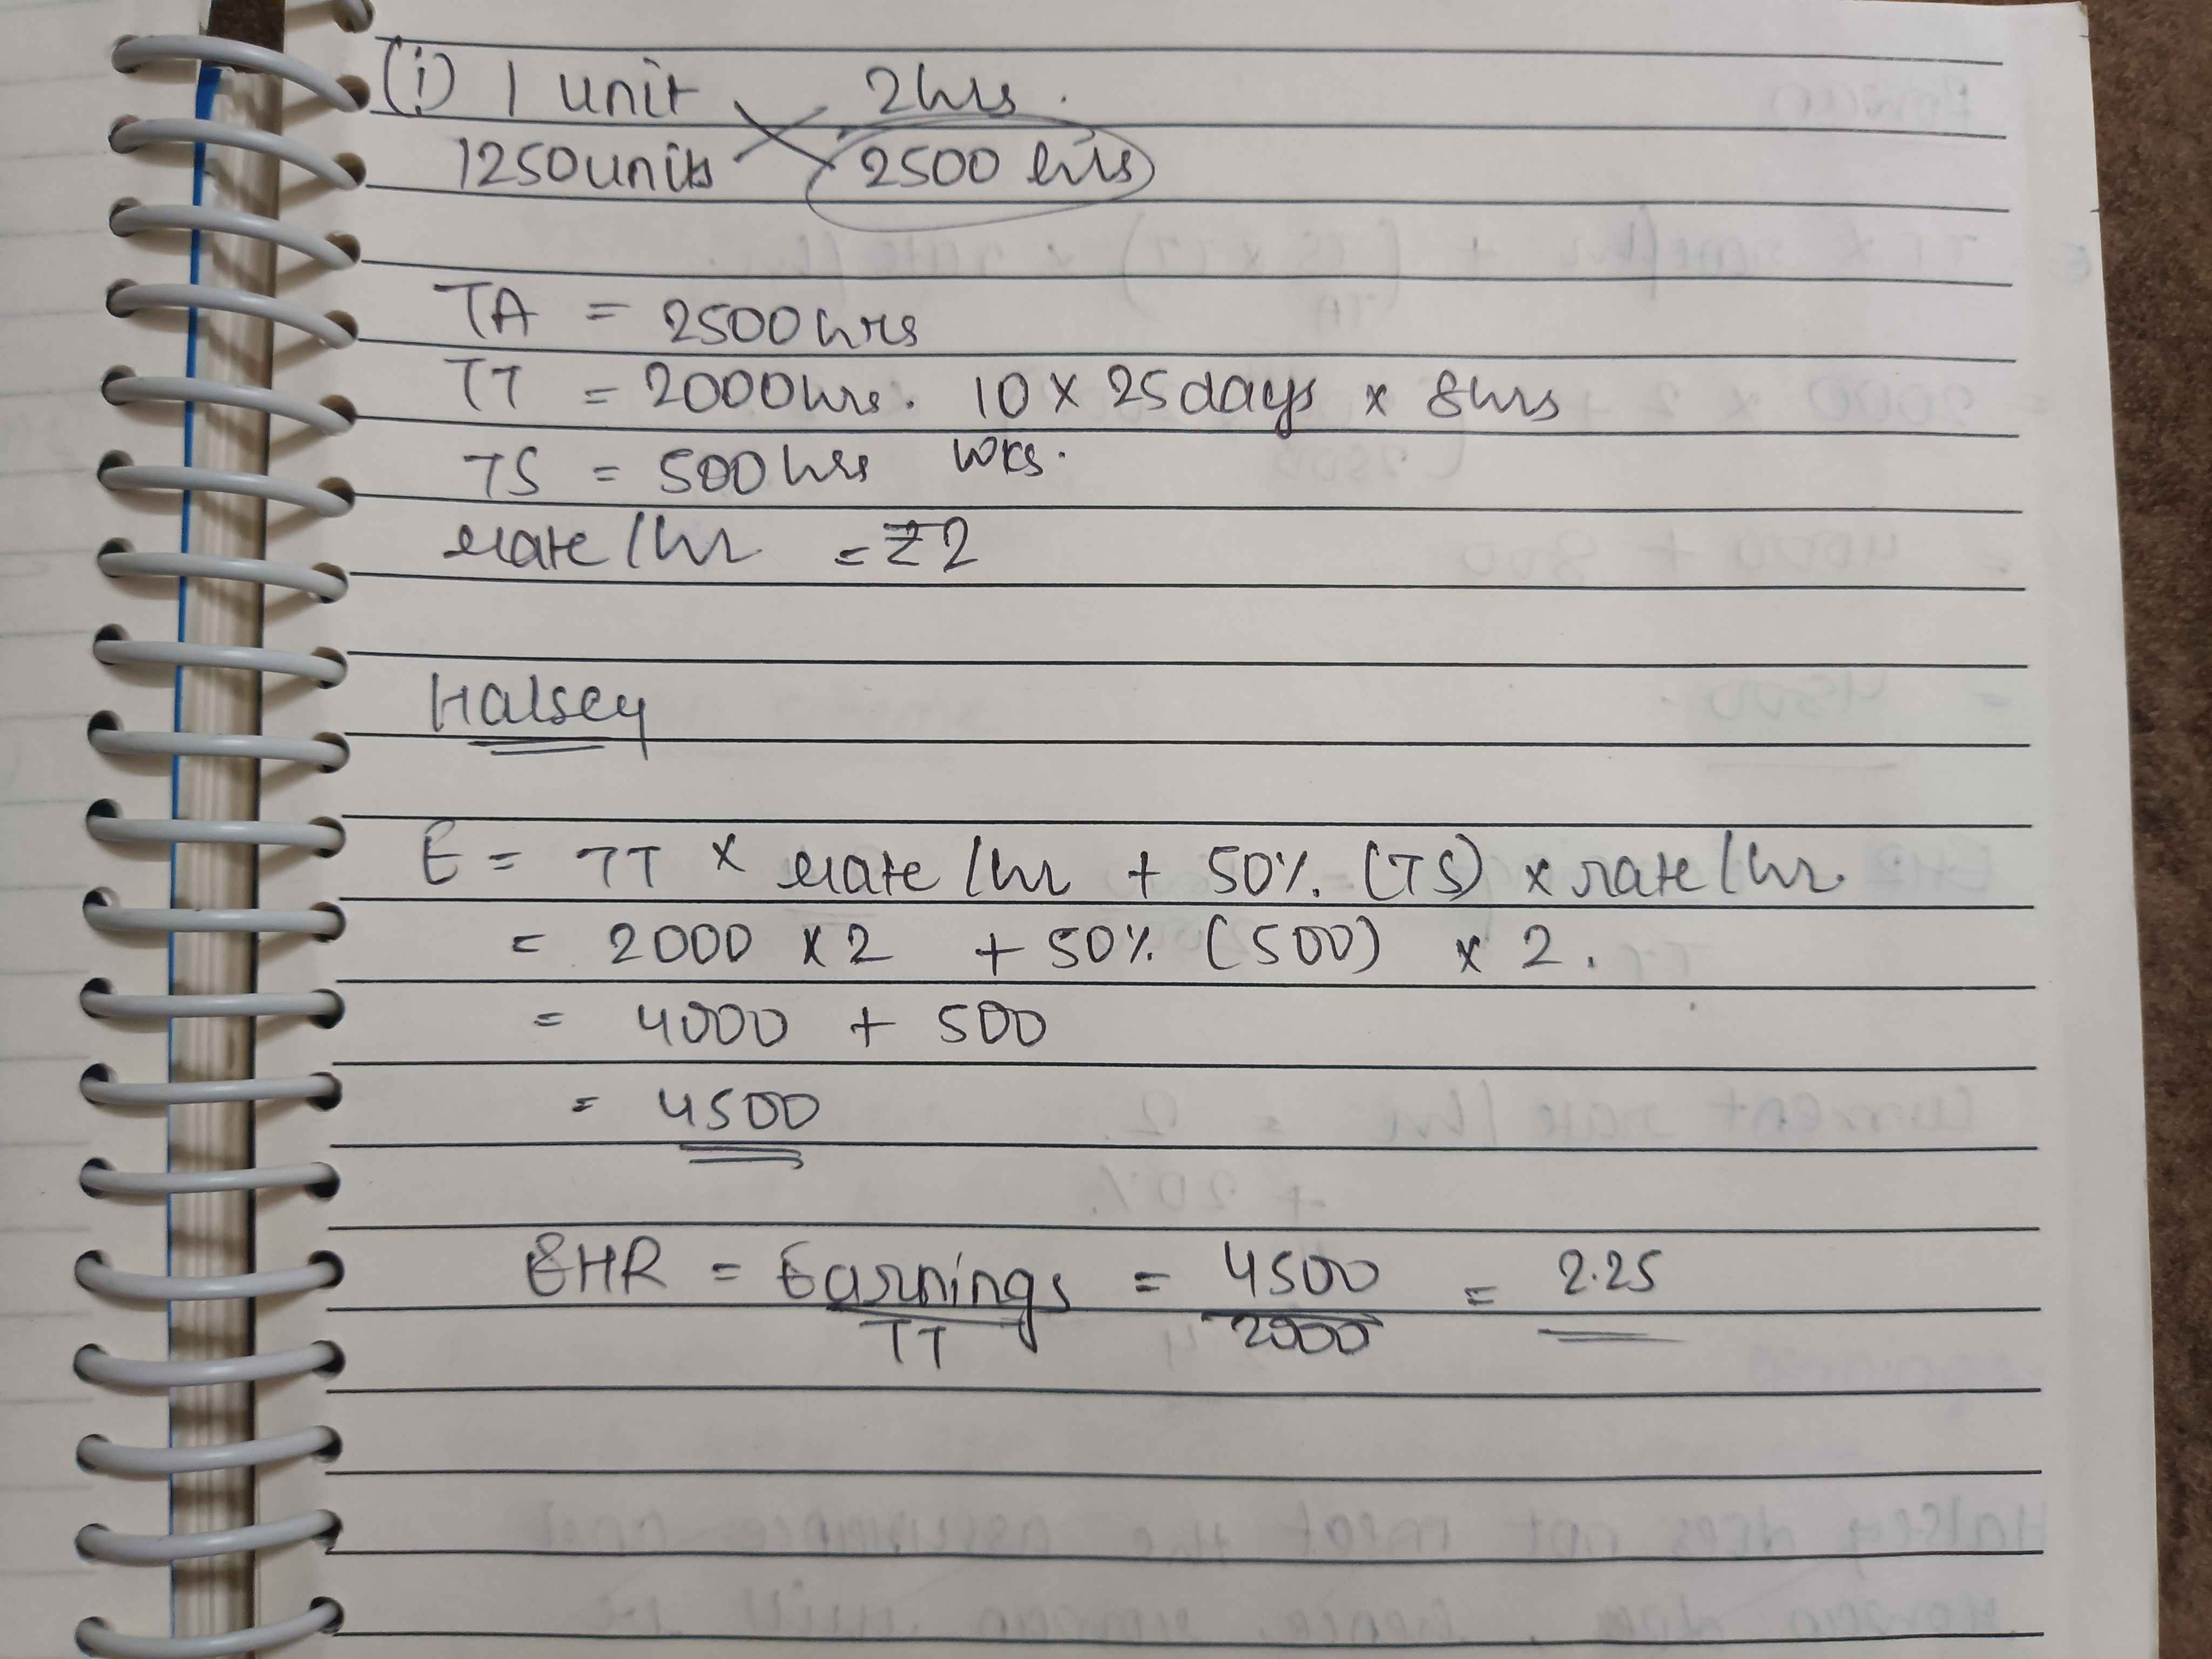 (i) 1 unit 2hrs.
1250 units 2500 hrs
TA = 2500 hrs
TT = 2000 hrs. 10 x 25 days x 8 hrs
TS = 500 hrs wks.
rate/hr = ₹2
Halsey
E = TT x rate/hr + 50%. (TS) x rate/hr.
= 2000 x 2 + 50%. (500) x 2.
= 4000 + 500
= 4500
EHR = Earnings = 4500 = 2.25
TT 2000